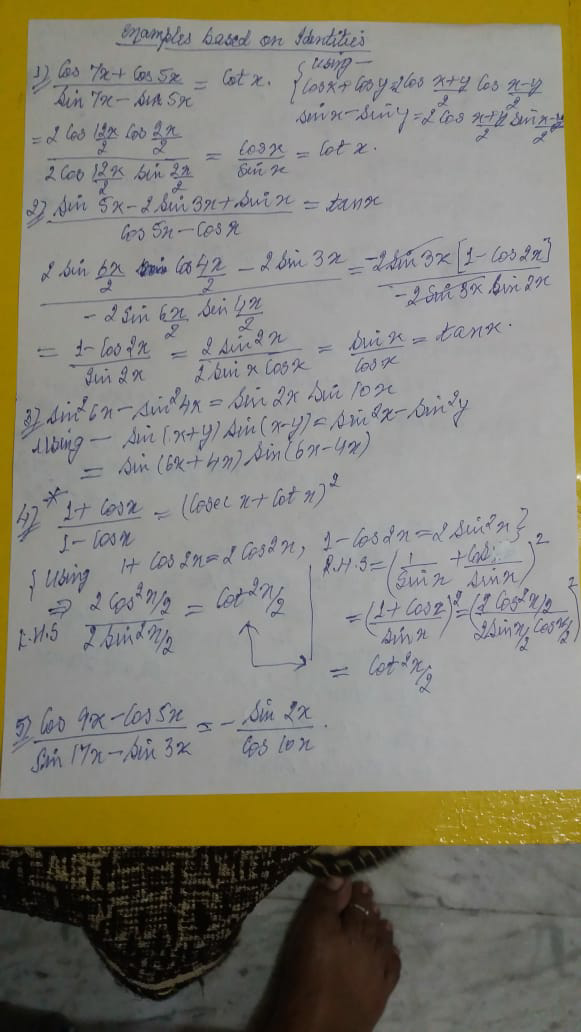 Examples based on Identities
1) (Cos 7x + Cos 5x)/(Sin 7x - Sin 5x) = Cot x. { Using -
Cosx + Cosy = 2Cos (x+y)/2 Cos (x-y)/2
Sinx - Siny = 2 Cos (x+y)/2 Sin (x-y)/2
= (2 Cos 12x/2 Cos 2x/2)/(2 Cos 12x/2 Sin 2x/2) = Cosx/Sinx = Cot x.
2) (Sin 5x - 2 Sin 3x + Sin x)/(Cos 5x - Cosx) = tanx
(2 Sin 6x/2 Cos 4x/2 - 2 Sin 3x)/(-2 Sin 6x/2 Sin 4x/2) = (-2 Sin 3x [1 - Cos 2x])/(-2 Sin 3x Sin 2x)
= (1 - Cos 2x)/(Sin 2x) = (2 Sin²x)/(2 Sin x Cosx) = Sin x/Cosx = tanx.
3) Sin²6x - Sin²4x = Sin 2x Sin 10x
Using - Sin (x+y) Sin (x-y) = Sin²x - Sin²y
= Sin (6x + 4x) Sin (6x - 4x)
4) * (1 + Cosx)/(1 - Cosx) = (Cosec x + Cot x)²
{ Using 1 + Cos 2x = 2 Cos²x, 1 - Cos 2x = 2 Sin²x }
L.H.S ⇒ (2 Cos² x/2)/(2 Sin² x/2) = Cot² x/2
R.H.S = (1/Sinx + Cosx/Sinx)²
= ((1 + Cosx)/Sinx)² = ((2 Cos² x/2)/(2 Sin x/2 Cos x/2))²
= Cot² x/2
5) (Cos 9x - Cos 5x)/(Sin 17x - Sin 3x) = - Sin 2x/Cos 10x.